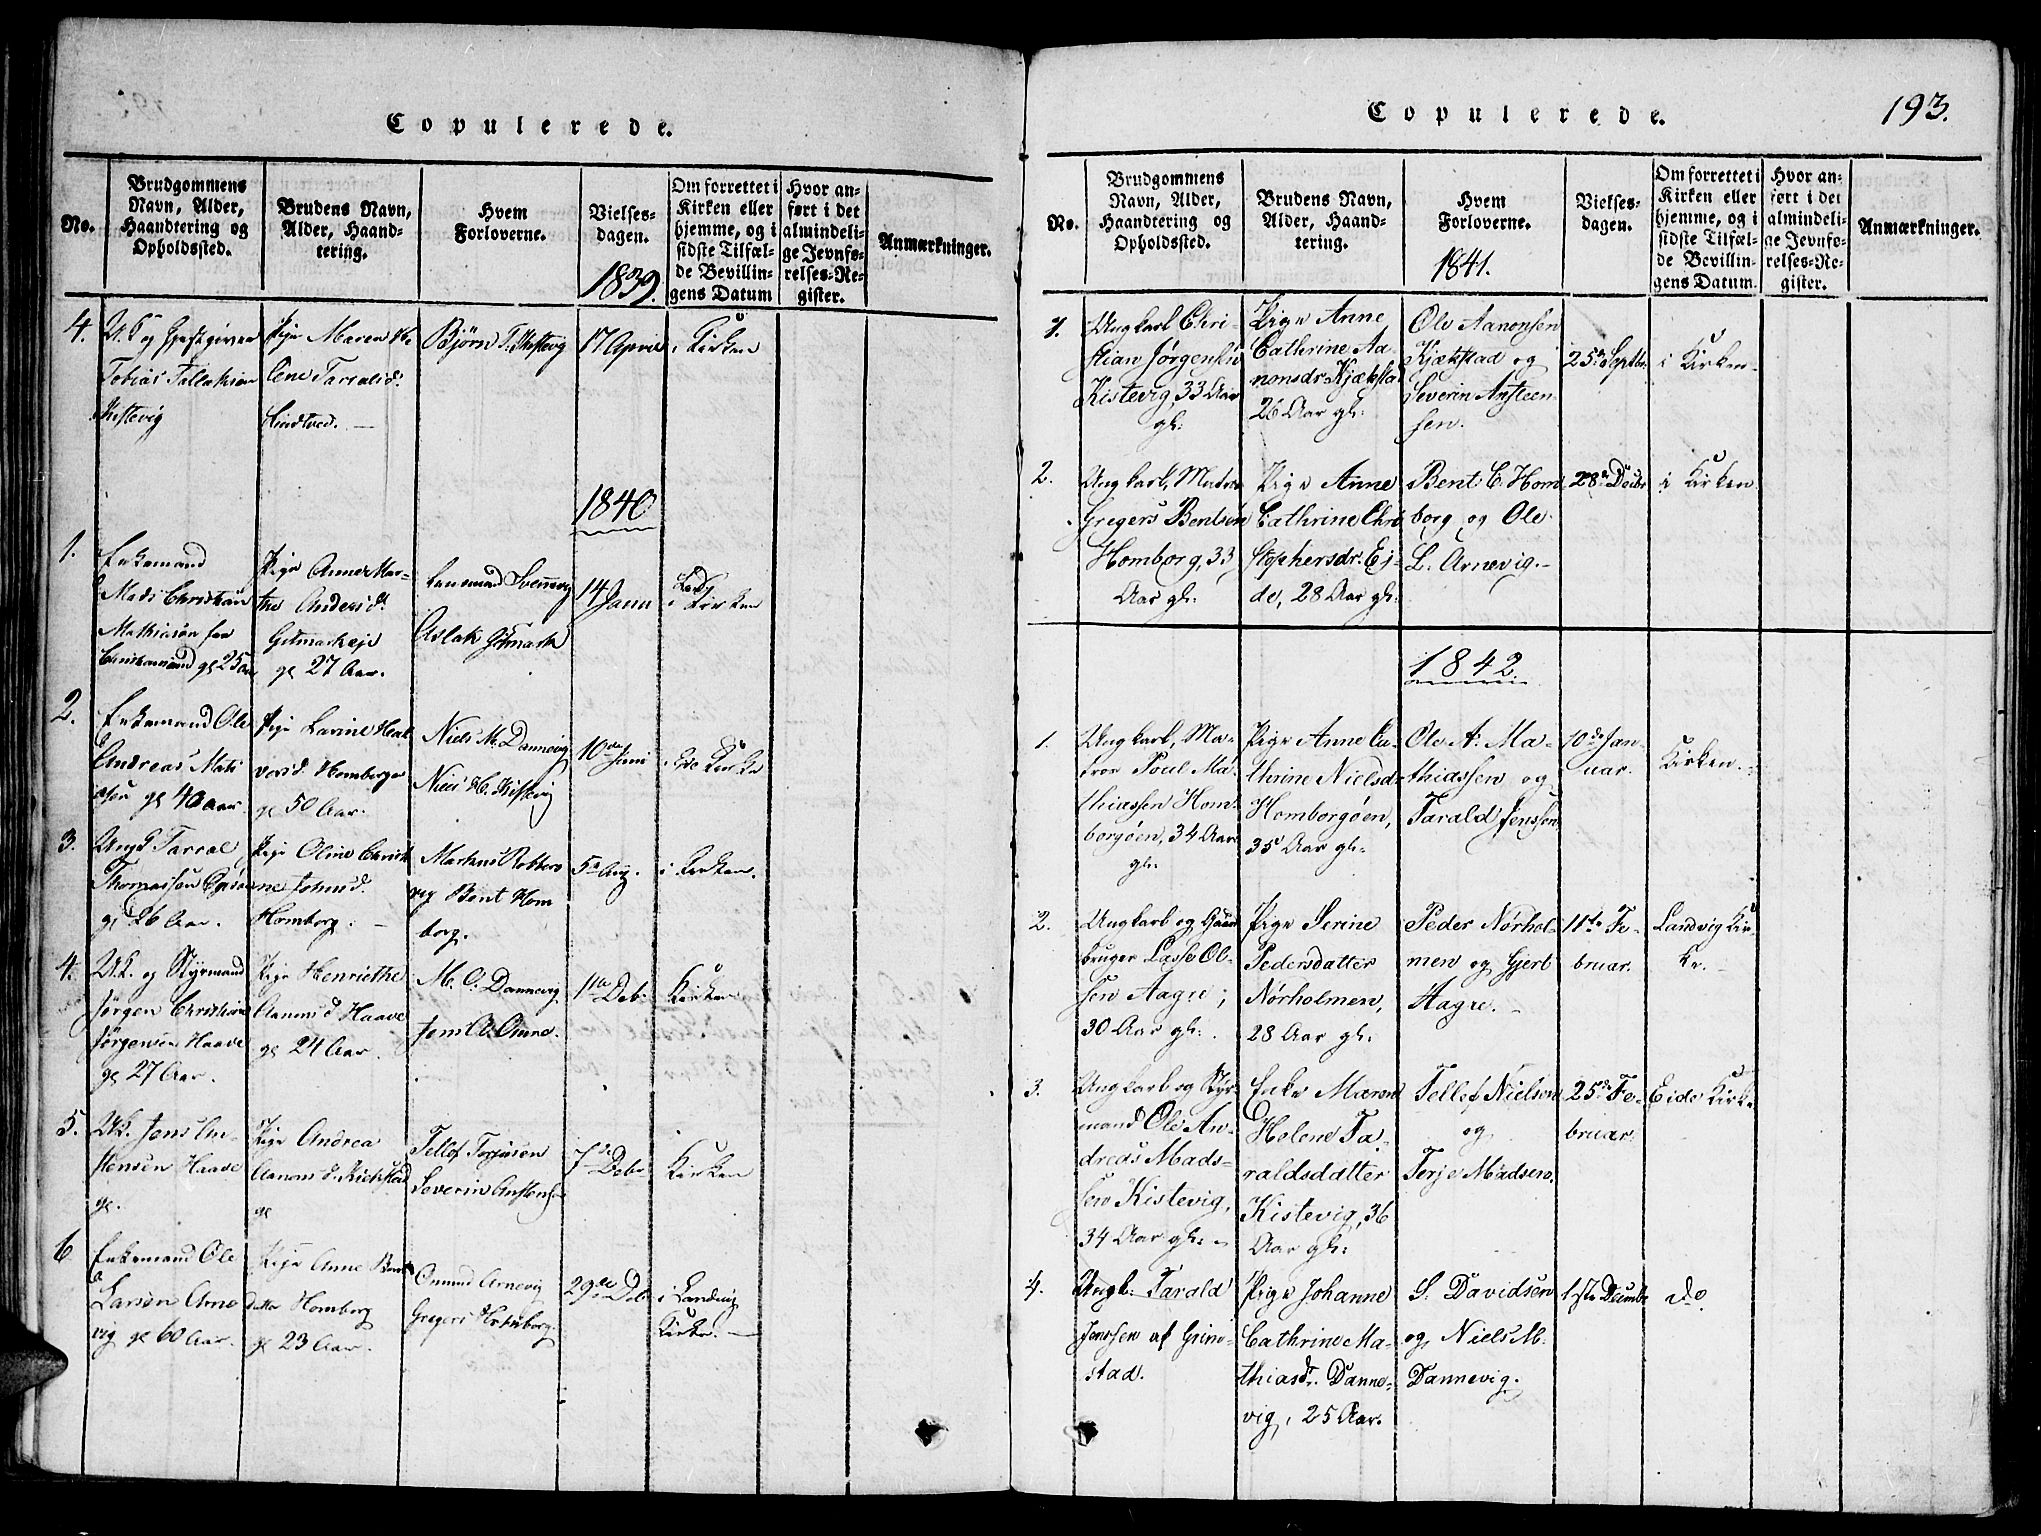 Copulerede.
No.
Brudgommens Navn, Alder, Haandtering og Opholdssted.
Brudens Navn, Alder, Haandtering.
Hvem Forloverne.
Vielsesdagen.
1839.
Om forrettet i Kirken eller hjemme, og i sidste Tilfælde Bevillingens Datum
Hvor anført i det almindelige Jevnførelses-Register.
Anmærkninger.
4.
Tobias Tallaksen
Pige Maren He-
lene Taralsd.
17 April
i Kirken
1840
1.
Enkemand
Mads Christian
Mathiasøn fra
Christiansand gl 25 Aar
Pige Anne Mar-
the Andersd.
Gitmarkeje
gl 27 Aar.
Aslak Gitmark
14 Janu
i Kirken
2.
Enkemand Ole
Andreas
gl 40 Aar
Pige
Homborgø
gl 50 Aar.
Niels M. Dannevig
Niels H. Kistevig
10de Juni
i Eide Kirke
3.
Ungk Tarral
Thomassen
gl 26 Aar.
Pige Oline Christi-
ne
Homborg.
Markus
vig Bent Hom
borg.
5te Aug.
i Kirken.
4.
Uk. og Styrmand
Jørgen Christian
Jørgensen Haave
gl 27 Aar.
Pige Henriethe
Aanonsd Haave
gl 24 Aar.
M. C. Dannevig
Jens
11te Deb:
Kirken
5.
Uk. Jens An-
stensen Haave
gl.
Pige Andrea
Aanonsd
gl
Tellef Torjusen
Severin Anstensen
7de Debr
Kirken
6
Enkemand Ole
Larsøn Arne
vig gl 60 Aar.
Pige Anne Bents
datter Homborg
gl 23 Aar.
Onund Arnevig
Gregers Homborg.
29de Deb:
i Landvig
Kirke.
Copulerede.
193.
No.
Brudgommens Navn, Alder, Haandtering og Opholdssted.
Brudens Navn, Alder, Haandtering.
Hvem Forloverne.
1841.
Vielsesdagen.
Om forrettet i Kirken eller hjemme, og i sidste Tilfælde Bevillingens Datum.
Hvor anført i det almindelige Jevnførelses-Register.
Anmærkninger.
1.
Ungkarl Chri-
stian Jørgensen
Kistevig, 33 Aar
gl:
Pige Anne
Cathrine Aa-
nonsdr. Kjæksta
26 Aar gl:
Ole Aanonsen
Kjækstad og
Severin Ansteen-
sen.
25de Septbr.
i Kirken
2.
Ungkarl, Matros
Gregers Bentsen
Homborg, 33
Aar gl:
Pige Anne
Cathrine Chri
stophersdr. Ej-
de, 28 Aar gl:
Bent C. Hom
borg og Ole
L. Arnevig.
28de Decbr
i Kirken
1842.
1.
Ungkarl, Ma-
tros Poul Ma-
thiassen Hom-
borgøen, 34 Aar
gl.
Pige Anne Ca-
thrine Nielsdr
Homborgøen,
35 Aar gl:
Ole A. Ma-
thiassen og
Tarald Jenssen
10de Jan-
uar.
Kirken.
2.
Ungkarl og Gaard
bruger Lasse Ol-
sen Aagre;
30 Aar gl:
Pige Serine
Pedersdatter
Nørholmen,
28 Aar gl:
Peder Nørhol-
men og Gjert
Aagre.
11te Fe-
bruar.
Landvig Kir-
ke.
3.
Ungkarl og Styr-
mand Ole An-
dreas Mads-
sen Kistevig,
34 Aar gl:
Enke Maren
Helene Ta-
raldsdatter
Kistevig, 36
Aar gl:
Tellef Nielsen
og
Terje Madsen.
25de Fe-
bruar.
Eide Kirke
4.
Ungk: Tarald
Jenssen af Grim-
stad.
Pige Johanne
Cathrine Ma-
thiasdr. Danne-
vig, 25 Aar.
S. Davidsen
og Niels M.
Dannevig.
1ste Decembr
do.